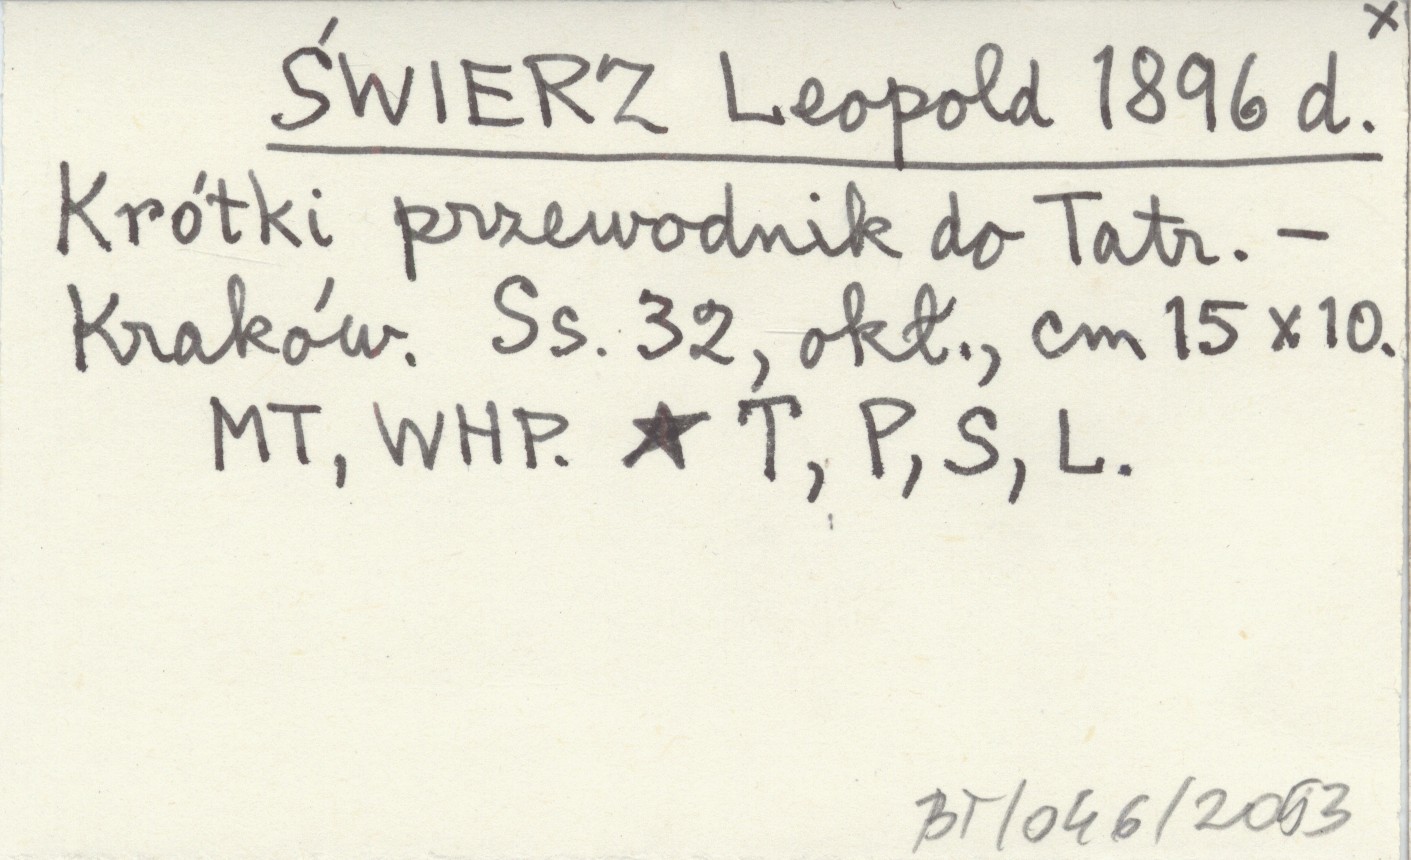 x
ŚWIERZ Leopold 1896 d.
Krótki przewodnik do Tatr. –
Kraków. Ss. 32, okł., cm 15 x 10.
MT, WHP. ★ T, P, S, L.